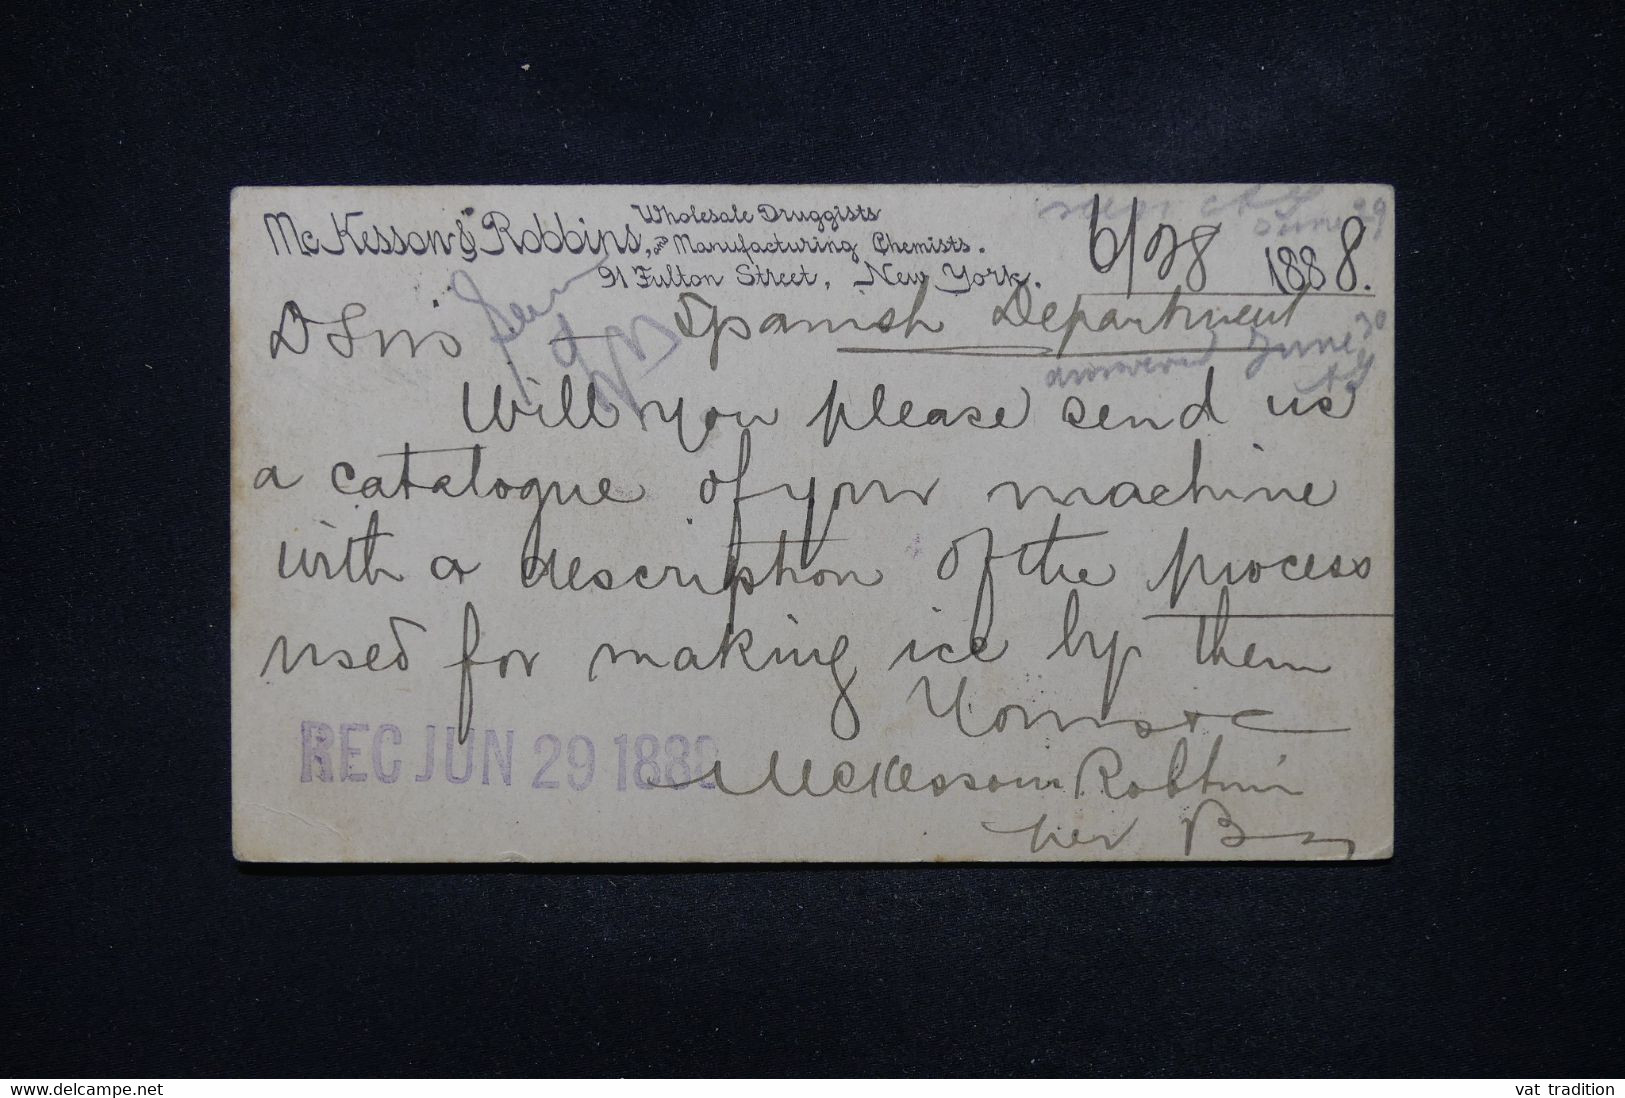 McKesson & Robbins, Wholesale Druggists
and Manufacturing Chemists.
91 Fulton Street, New York.
6/28 1888.
June 29
D Sirs Spanish Department
answered June 30
Will you please send us
a catalogue of your machine
with a description of the process
used for making ice by them
Yours &c
McKesson Robbins
per B
REC JUN 29 1888
www.delcampe.net
vat tradition